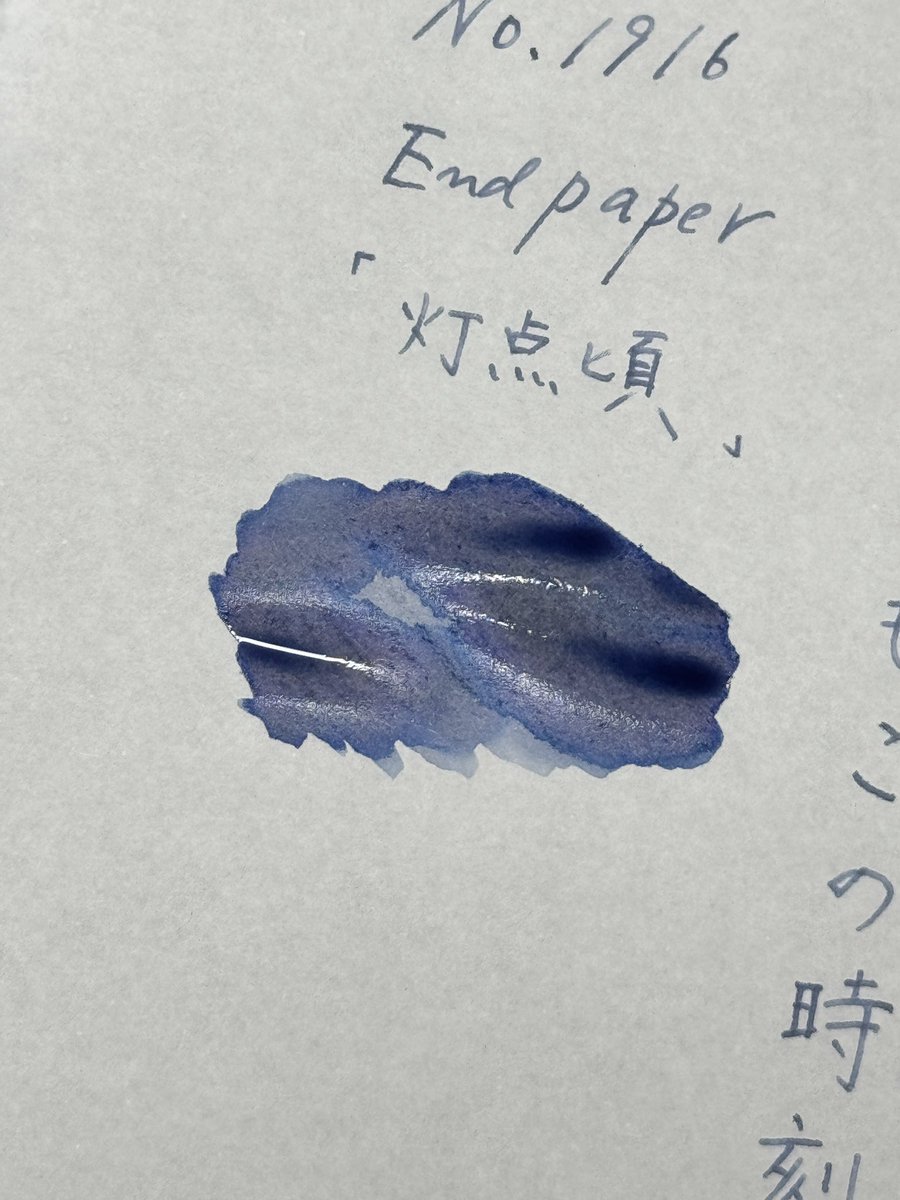 No.1916
Endpaper
「灯点頃」
この時刻